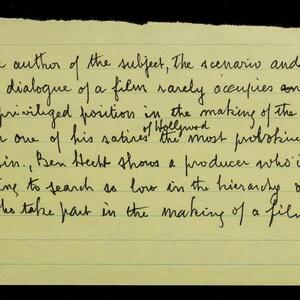 author of the subject, the scenario and
dialogue of a film rarely occupies an
privileged position in the making of the
in one of his satires of Hollywood the most provoking
in., Ben Hecht shows a producer who i
ing to search so low in the hierarchy o
ho take part in the making of a film